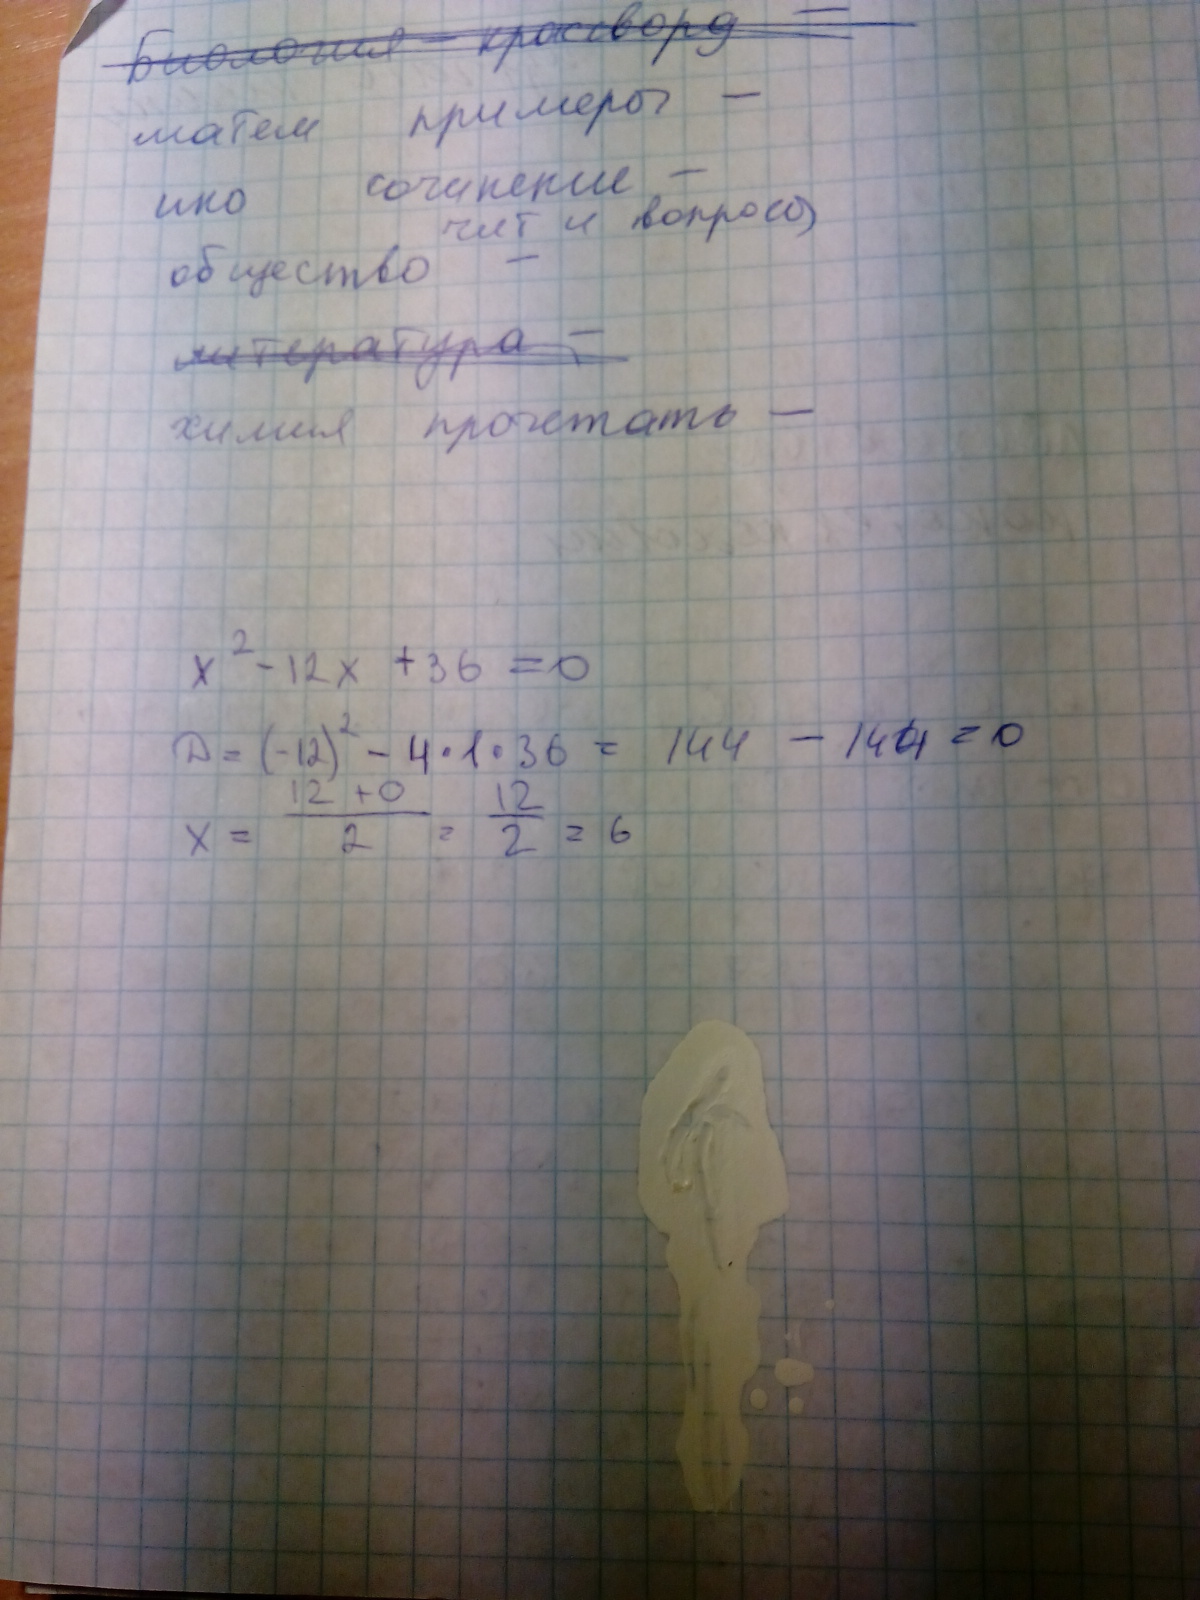 Биология – кроссворд –
матем примеры –
ино сочинение –
чит и вопросы
общество –
литература –
химия прочетать –
x² - 12x + 36 = 0
D = (-12)² - 4·1·36 = 144 - 144 = 0
x = (12 + 0)/2 = 12/2 = 6